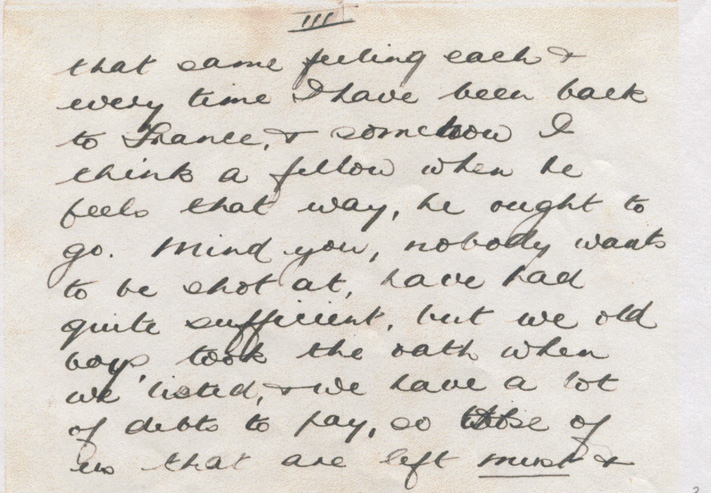 III
that same feeling each &
every time I have been back
to France, & somehow I
think a fellow when he
feels that way, he ought to
go. Mind you, nobody wants
to be shot at, have had
quite sufficient, but we old
boys took the oath when
we 'listed, & we have a lot
of debts to pay, so those of
us that are left must &
2